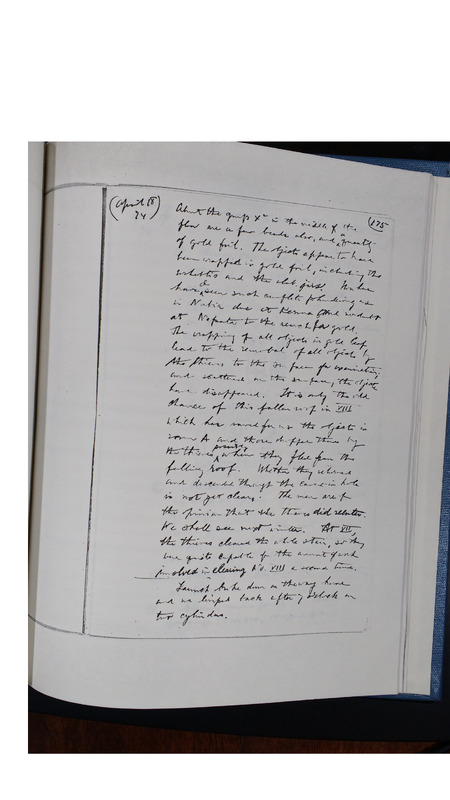 (April 18 24) (175)
About the group X in the middle of the
floor are a few beads also, and a quantity
of gold foil. The objects appear to have
been wrapped in gold foil, including the
and the
have seen such complete plundering as
in Nubia due at Kerma and
at to the search for gold.
The wrapping of all objects in gold leaf
lead to the removal of all objects by
the thieves to the surface for examination
and scattered on the surface, the objects
have disappeared. It is only the
chance of this fallen roof in VIII
which has saved for us the objects in
room A and those dropped there by
the thieves possibly when they flee from the
falling roof. Whether they returned
and descended through the caved in hole
is not yet clear. The men are of
the opinion that the thieves did return.
We shall see next winter. At VII,
the thieves cleared the whole stair, so they
were quite capable of the amount of work
involved in clearing No. VIII a second time.
Launch broke down on the way home
and we limped back after 7 o'clock on
two cylinders.